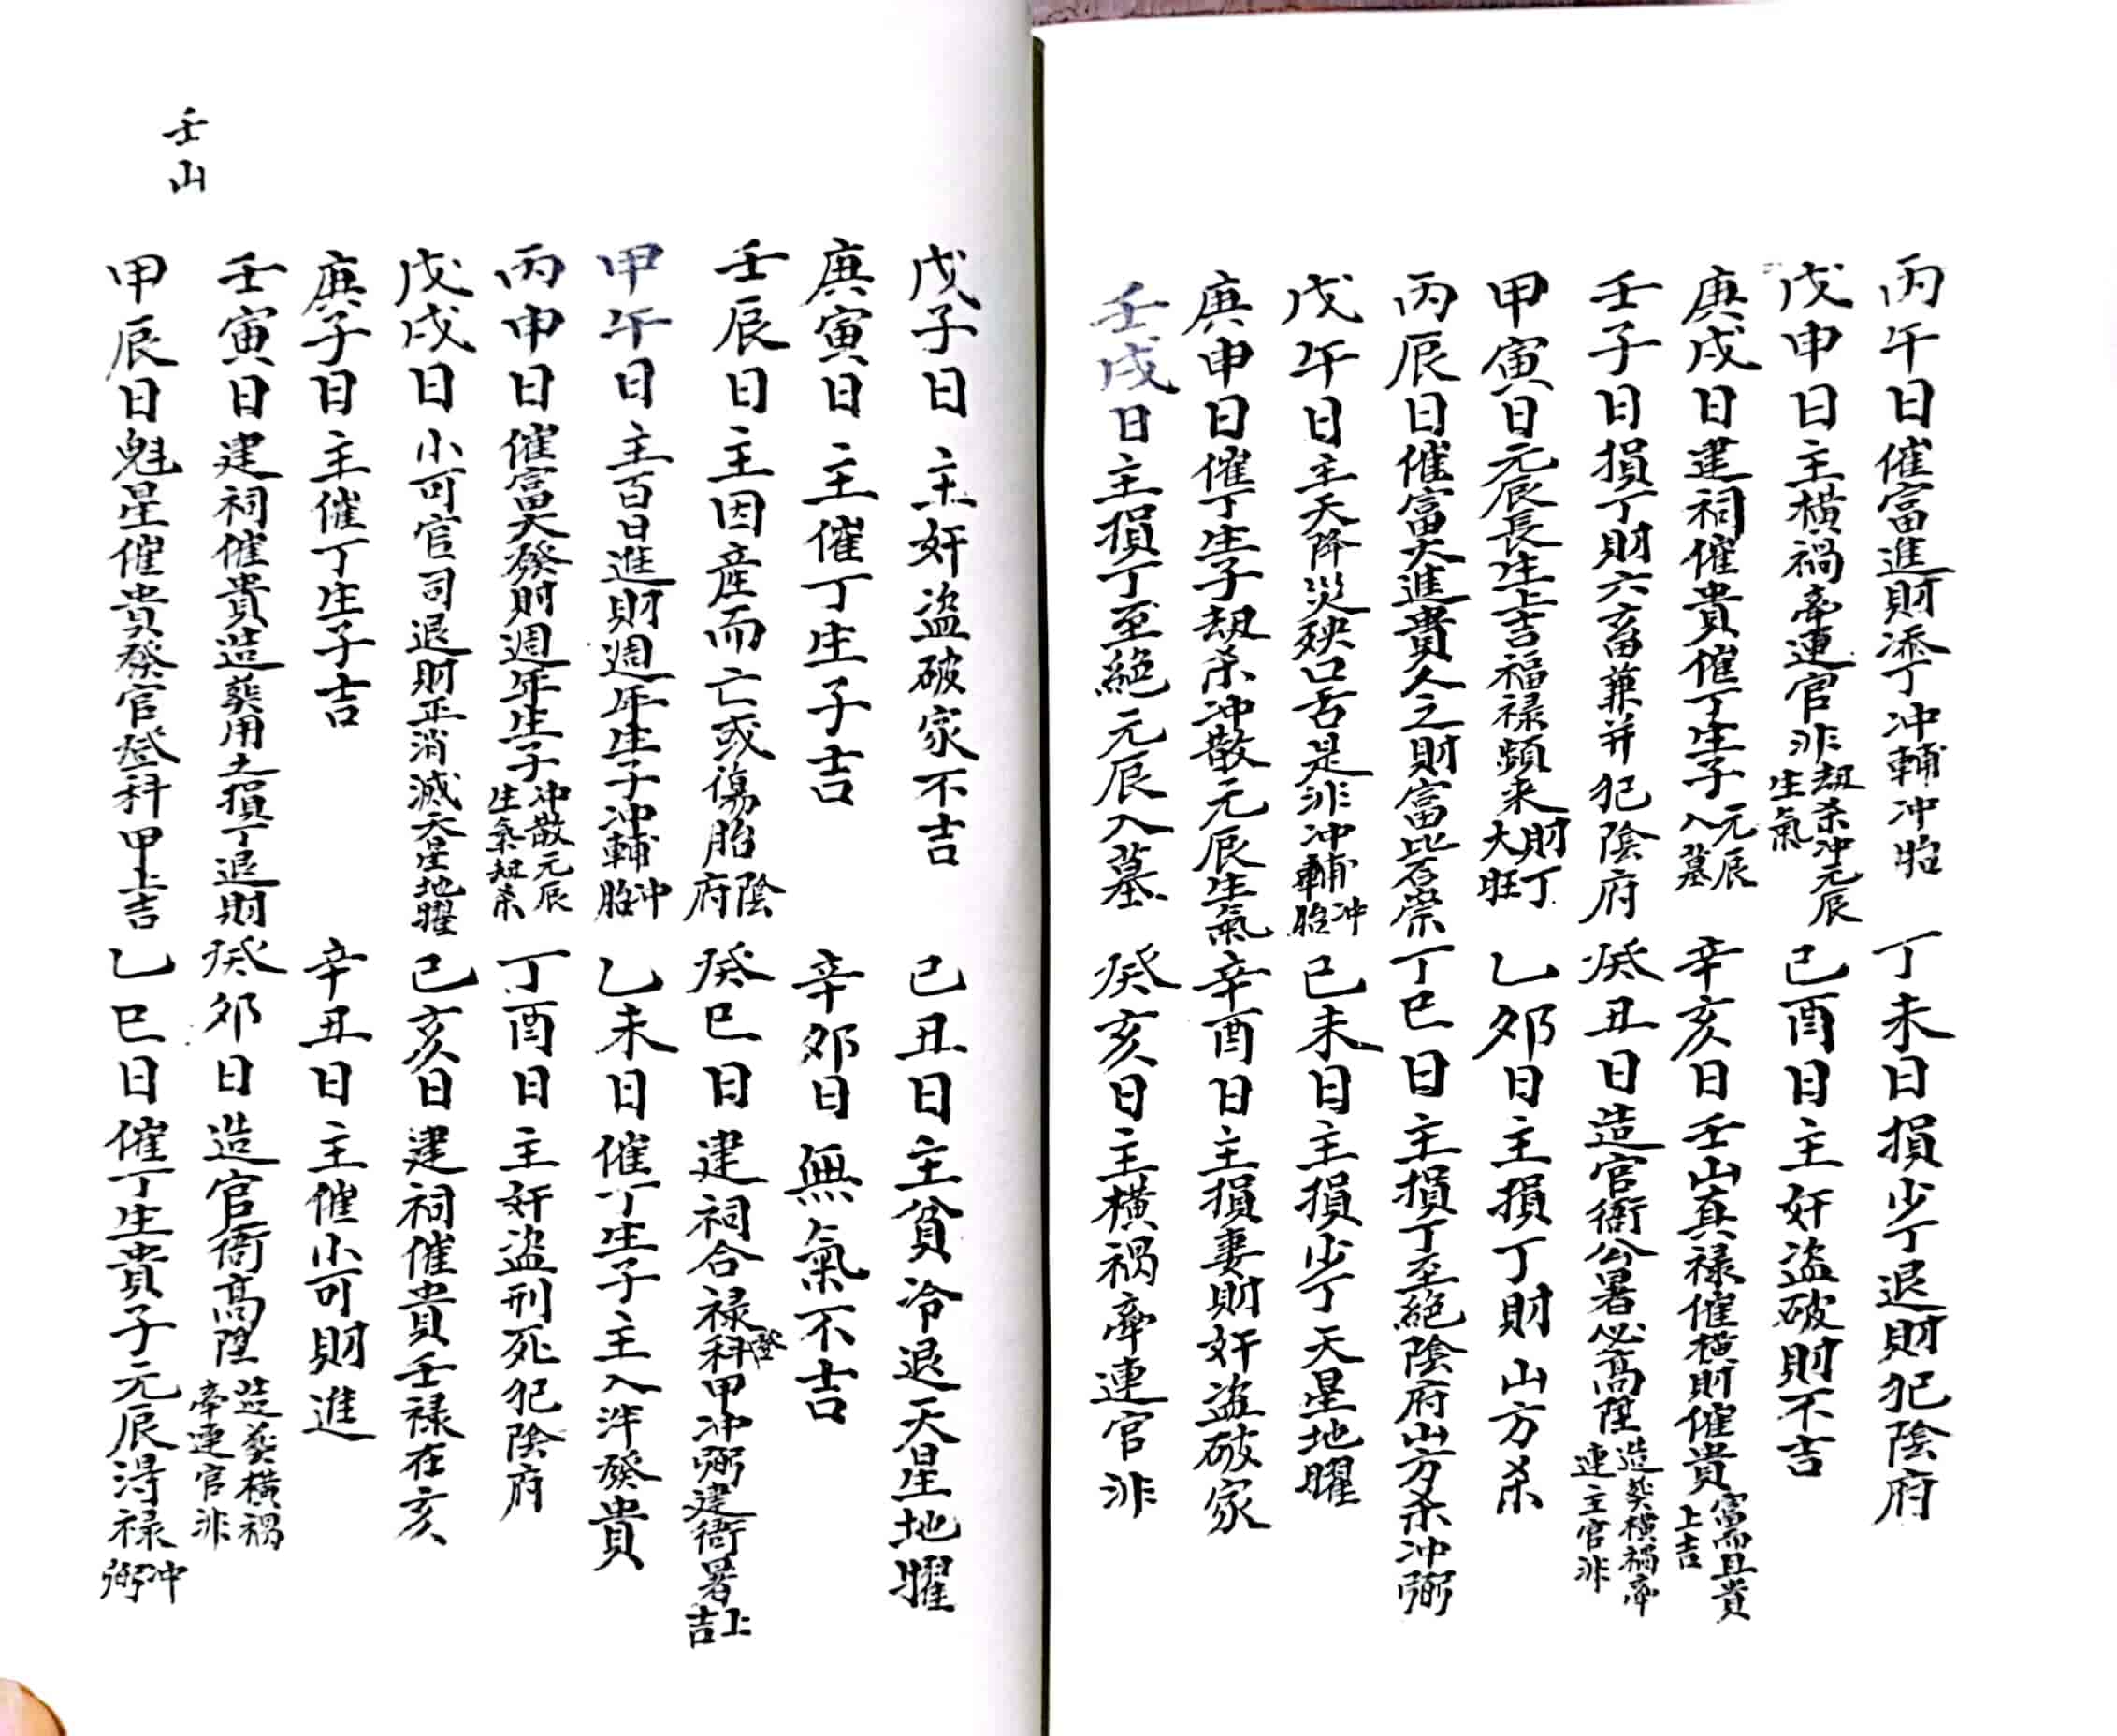 丙午日催富進財添丁冲輔冲胎　丁未日損少丁退財犯陰府
戊申日主横禍牽連官非刼杀冲元辰生氣　己酉日主奸盗破財不吉
庚戌日建祠催貴催丁生子元辰入墓　辛亥日壬山真禄催横財催貴富而且貴上吉
壬子日損丁財六畜兼并犯陰府　癸丑日造官衙公署必高陞造葵横禍牽連主官非
甲寅日元辰長生上吉福禄頻来財丁大旺　乙夘日主損丁財山方杀
丙辰日催富大進貴人之財富比石崇　丁巳日主損丁至絕陰府山方杀冲弼
戊午日主天降災殃口舌是非冲輔冲胎　己未日主損少丁天星地曜
庚申日催丁生子刼杀冲散元辰生氣　辛酉日主損妻財奸盗破家
壬戌日主損丁至絕元辰入墓　癸亥日主横禍牽連官非
戊子日主奸盗破家不吉　己丑日主貧冷退天星地曜
庚寅日主催丁生子吉　辛夘日無氣不吉
壬辰日主因産而亡或傷胎陰府　癸巳日建祠合禄登科甲冲弼建衙署上吉
甲午日主百日進財週年生子冲輔冲胎　乙未日催丁生子主入泮發貴
丙申日催富大發財週年生子冲散元辰生氣刼杀　丁酉日主奸盗刑死犯陰府
戊戌日小可官司退財正消滅天星地曜　己亥日建祠催貴壬禄在亥
庚子日主催丁生子吉　辛丑日主催小可財進
壬寅日建祠催貴造葵用之損丁退財　癸夘日造官衙高陞造葵横禍牽連官非
甲辰日魁星催貴發官登科甲上吉　乙巳日催丁生貴子元辰淂禄冲弼
壬山